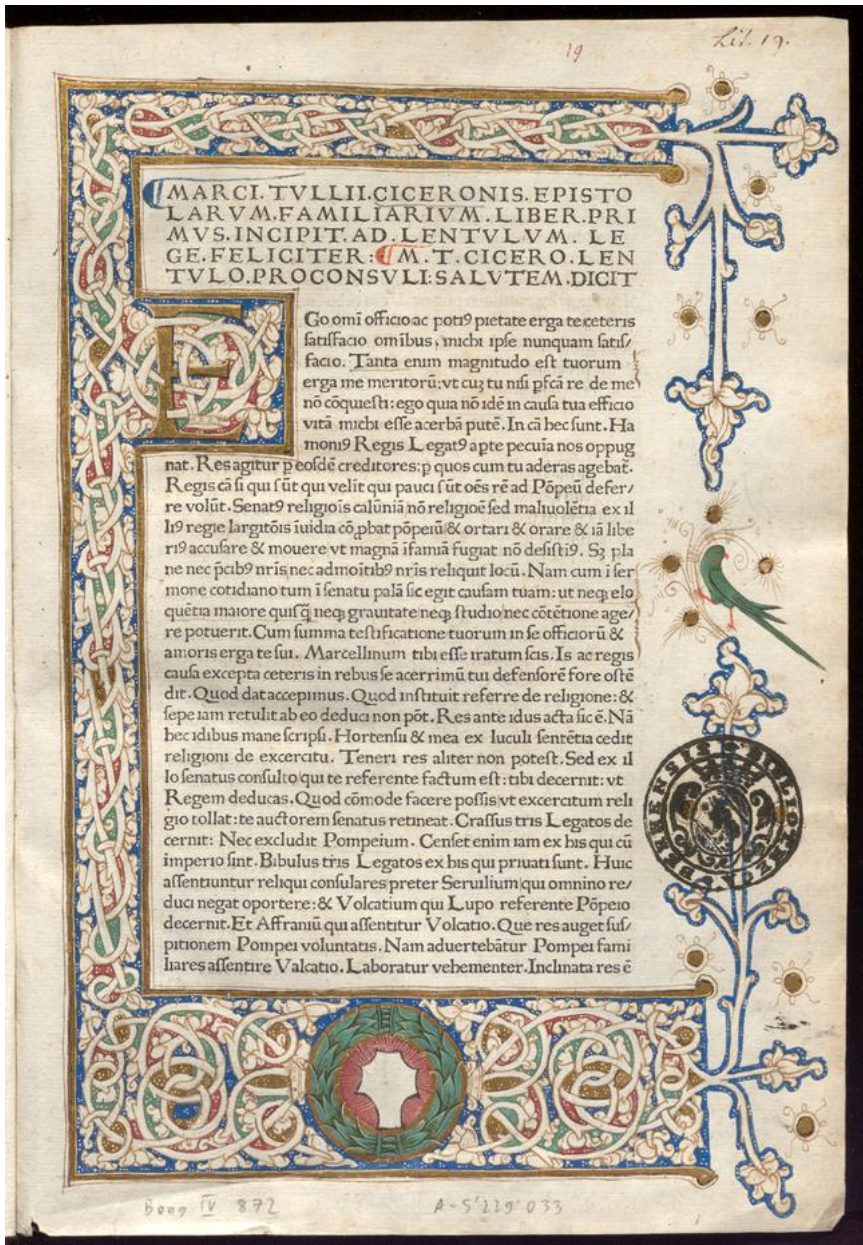 19
Lit. 19.
MARCI.TVLLII.CICERONIS.EPISTO
LARVM.FAMILIARIVM.LIBER.PRI
MVS.INCIPIT.AD.LENTVLVM. LE
GE.FELICITER: M.T.CICERO.LEN
TVLO.PROCONSVLI:SALVTEM.DICIT
EGo omī officio ac potiꝰ pietate erga te:ceteris
satisfacio omībus, michi ipse nunquam satis/
facio. Tanta enim magnitudo est tuorum
erga me meritorū:vt cuꝫ tu nisi pfcā re de me
nō cōquiesti: ego quia nō idē in causa tua efficio
vitā michi esse acerbā putē. In cā hec sunt. Ha
moniꝰ Regis Legatꝰ apte pecuīa nos oppug
nat. Res agitur ꝑ eosdē creditores: ꝑ quos cum tu aderas agebat̄.
Regis cā si qui sūt qui velīt qui pauci sūt oēs rē ad Pōpeū defer/
re volūt. Senatꝰ religioīs calūniā nō religiōe sed maliuolētia ex il
liꝰ regie largitōis īuidia cōꝓbat pōpeiū & ortari & orare & iā libe
riꝰ accusare & mouere vt magnā īfamiā fugiat nō desistīꝰ. Sꝫ pla
ne nec p̄cibꝰ nr̄is nec admoītibꝰ nr̄is reliquit locū. Nam cum ī ser
mone cotidiano tum ī senatu palā sic egit causam tuam: ut neqꝫ elo
quētia maiore quisq̄ neqꝫ grauitate neqꝫ studio nec cōtētione age/
re potuerit. Cum summa testificatione tuorum in se officiorū &
amoris erga te sui. Marcellinum tibi esse iratum scis. Is ac regis
causa excepta ceteris in rebus se acerrimū tui defensorē fore ostē
dit. Quod dat accepimus. Quod instituit referre de religione: &
sepe iam retulit ab eo deduci non pōt. Res ante idus acta sic ē. Nā
hec idibus mane scripsi. Hortensii & mea ex luculi sentētia cedit
religioni de excercitu. Teneri res aliter non potest. Sed ex il
lo senatus consulto qui te referente factum est: tibi decernit: vt
Regem deducas. Quod cōmode facere possis vt excercitum reli
gio tollat: te auctorem senatus retineat. Crassus tris Legatos de
cernit: Nec excludit Pompeium. Censet enim iam ex his qui cū
imperio sint. Bibulus tris Legatos ex his qui priuati sunt. Huic
assentiuntur reliqui consulares preter Seruilium qui omnino re/
duci negat oportere: & Volcatium qui Lupo referente Pōpeio
decernit. Et Affraniū qui assentitur Volcatio. Que res auget sus/
pitionem Pompei voluntatis. Nam aduertebātur Pompei fami
liares assentire Valcatio. Laboratur vehementer. Inclinata res ē
BERNENSIS BIBLIOTHE
Bong IV 872
A-5'229'033